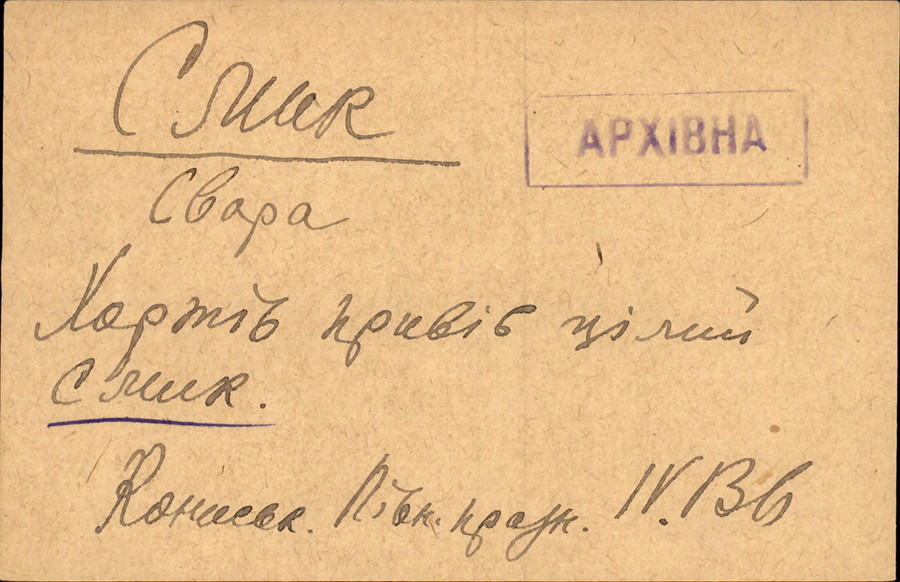 Смик
АРХІВНА
Свора
Хортів привів цілий
смик.
Кониськ. Півн. празн. IV. Вв